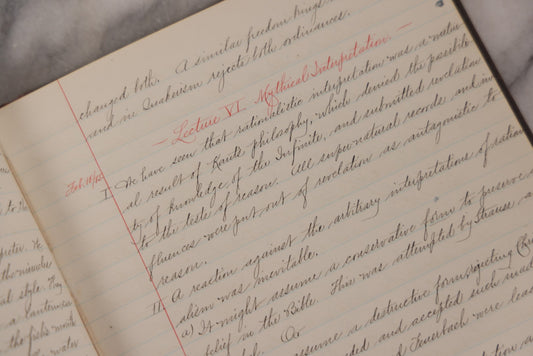 changed both. A similar freedom brings
und in Quakerism rejects both ordinances.
— Lecture VI. Mythical Interpretation. —
Feb. 10/
I We have seen that rationalistic interpretation was a natur-
al result of Kants philosophy, which denied the possibili-
ty of knowledge of the Infinite, and submitted revelation
to the tests of reason. All supernatural records and in-
fluences were put out of revelation as antagonistic to
reason.
II. A reaction against the arbitrary interpretations of ration-
alism was inevitable.
a) It might assume a conservative form to preserve
belief in the Bible. This was attempted by Strauss
Or
assume a destructive form, rejecting
and accepted such
Feuerbach were
al style. They
a lantern
the fish's mouth
water